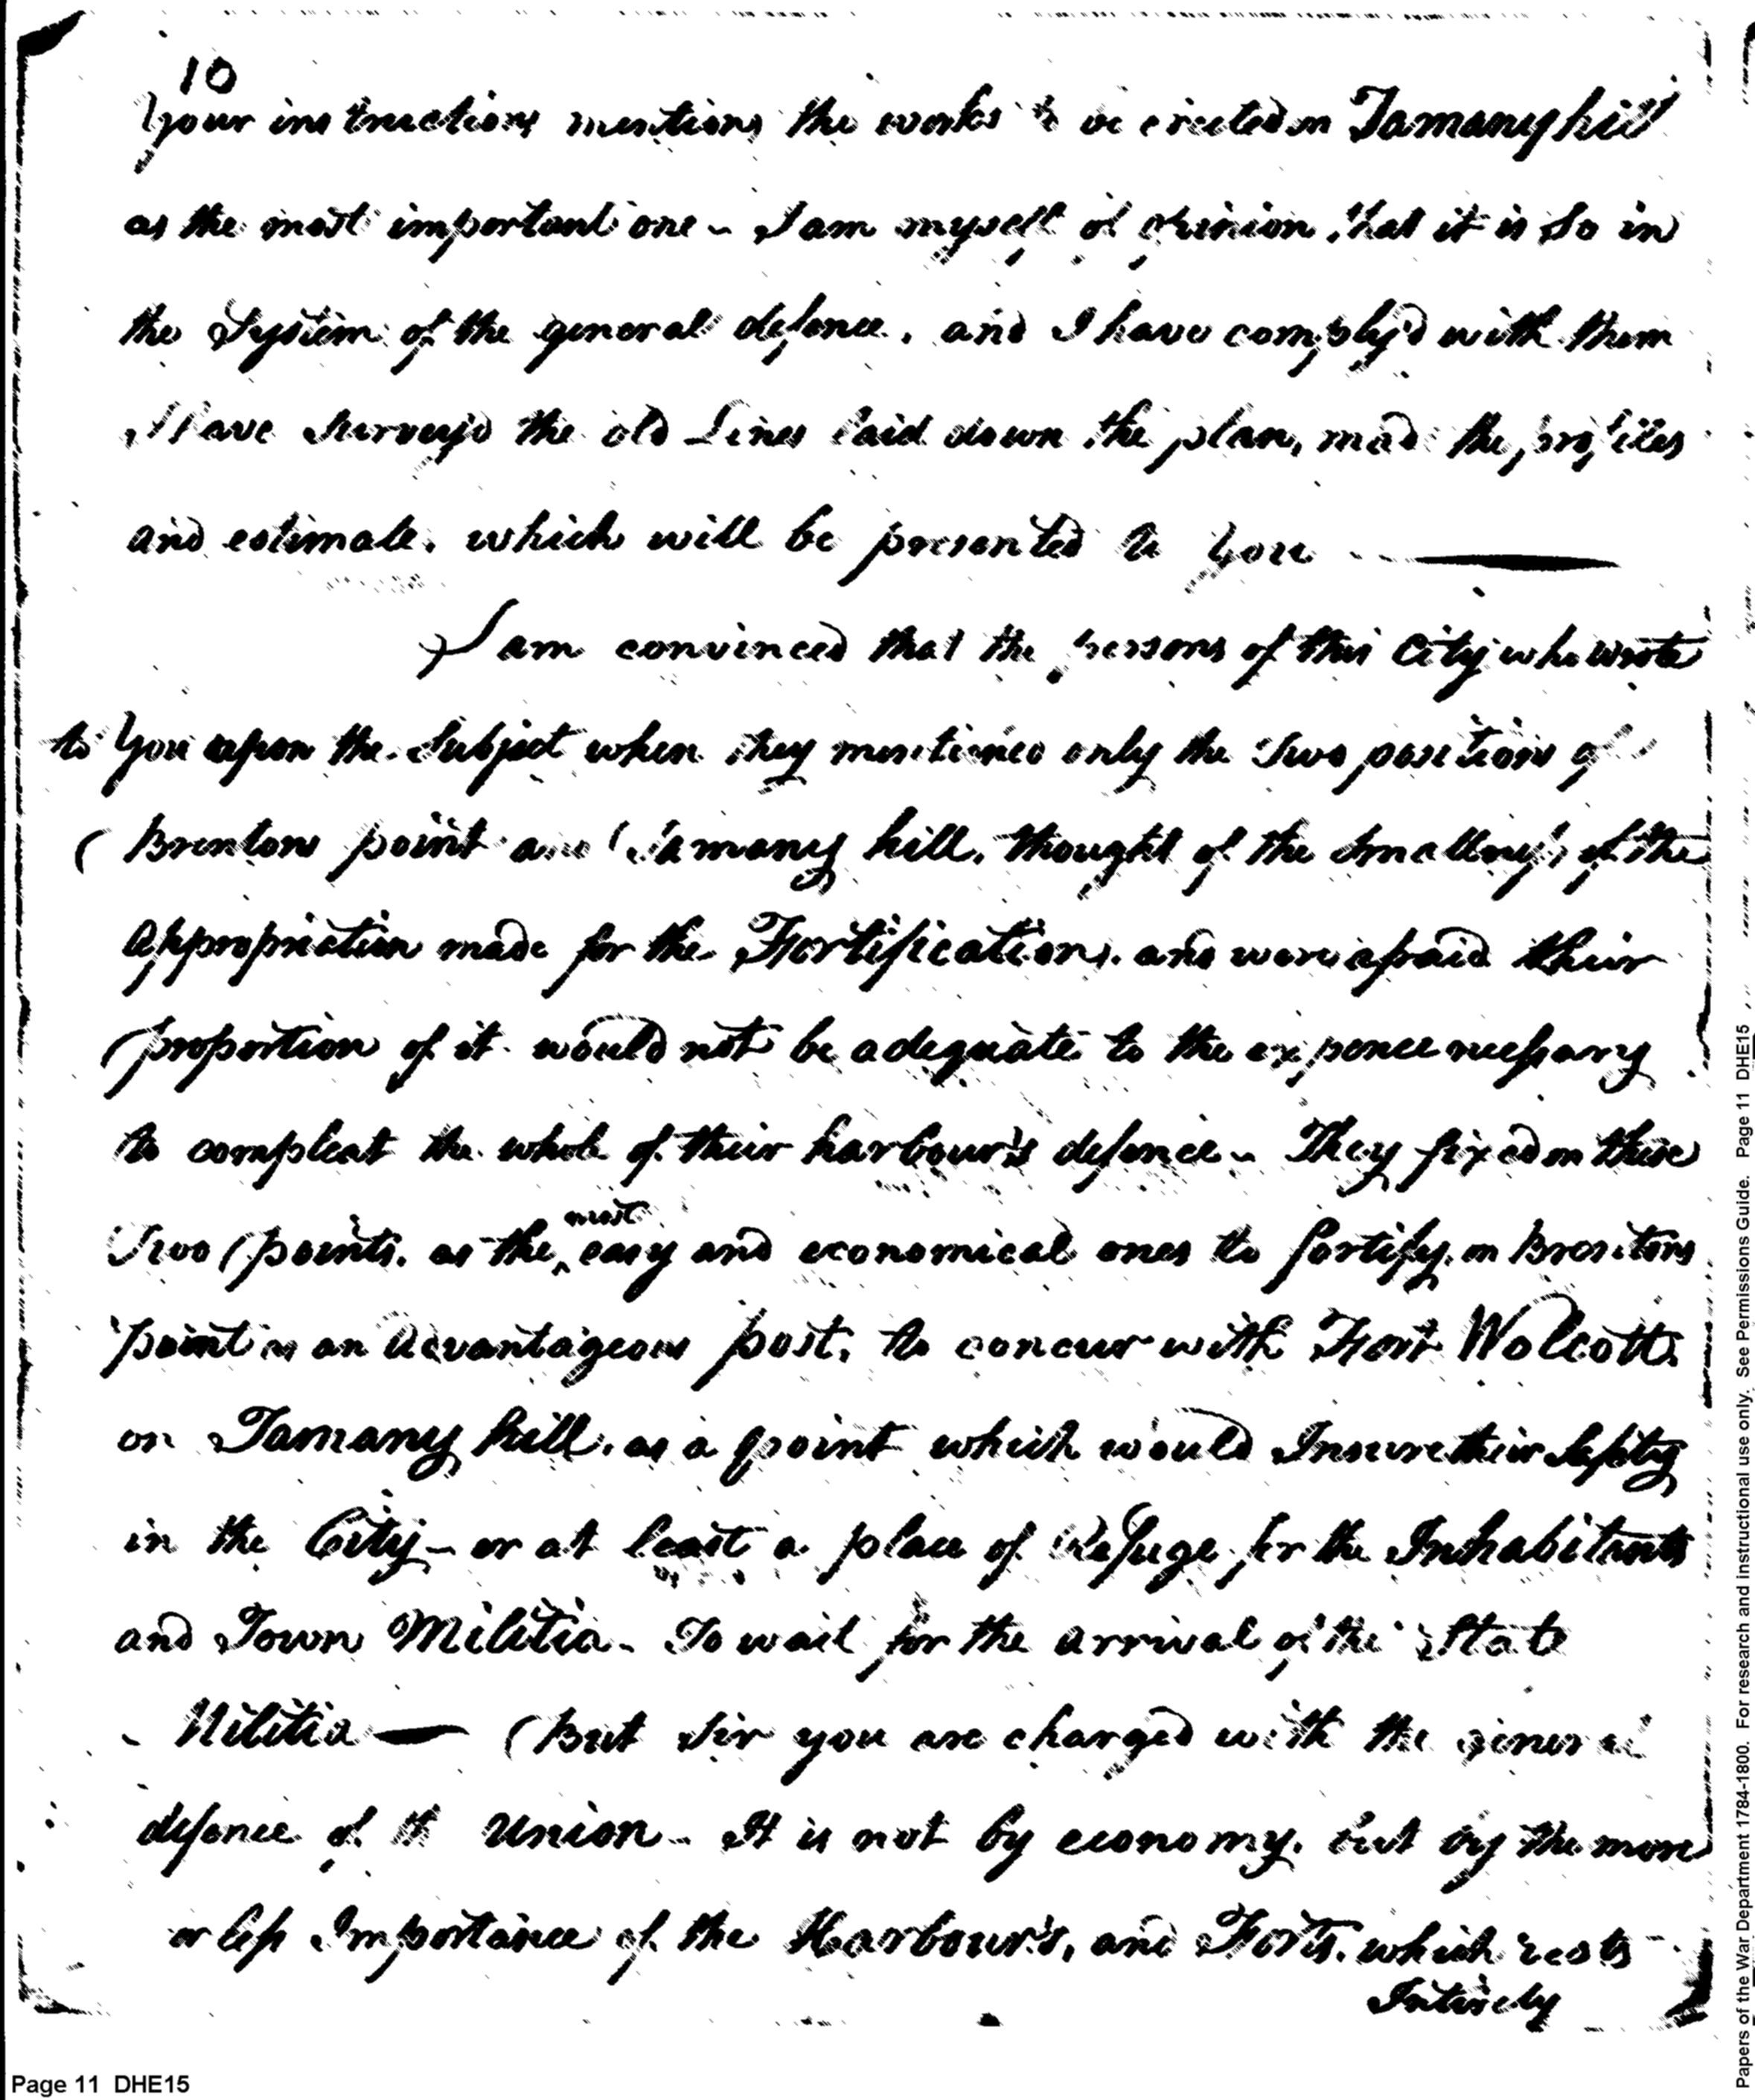 10
Your instructions mentions the works to be erected on Tamany hill
as the most important one - I am myself of opinion that it is So in
the System of the general defence, and I have comply'd with them
I Have Survey'd the old Lines laid down the plan, made the profiles
and estimate, which will be presented to You
I am convinced that the persons of this City who wrote
to You upon the Subject when they mentioned only the Two positions of
Brentons point and Tamany hill, thought of the Smallness of the
Appropriation made for the Fortifications, and were afraid their
proportion of it would not be adequate to the expence necessary
to compleat the whole of their harbour's defence - They fixed on these
Two points, as the most easy and economical ones to fortify, on Brentons
point as an Advantageous post, to concur with Fort Wolcott,
on Tamany hill, as a point which would Insure their Safety
in the City - or at least a place of Refuge for the Inhabitants
and Town Militia - To wait for the arrival of the State
Militia — But Sir you are charged with the general
defence of the Union - It is not by economy, but by the more
or less Importance of the Harbour's, and Forts, which rests
Intirely
Page 11 DHE15
Papers of the War Department 1784-1800. For research and instructional use only. See Permissions Guide. Page 11 DHE15